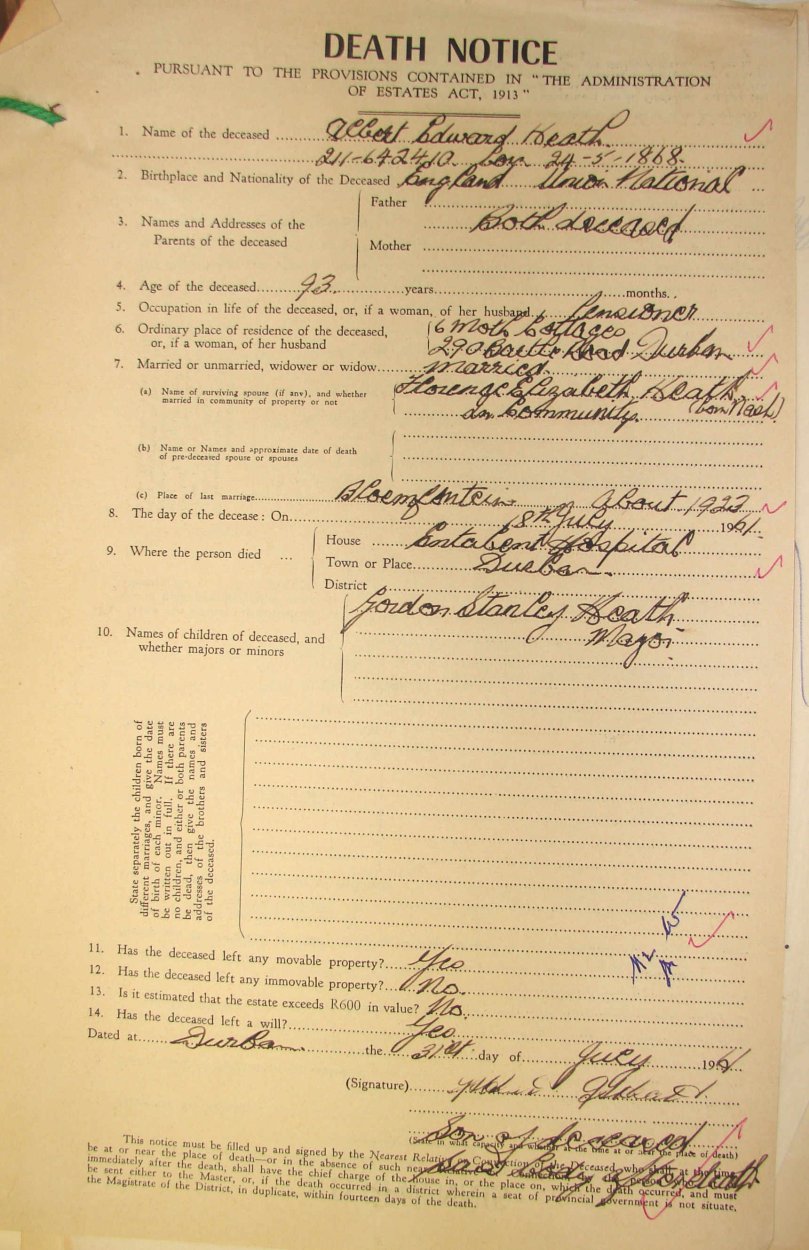 DEATH NOTICE
PURSUANT TO THE PROVISIONS CONTAINED IN "THE ADMINISTRATION
OF ESTATES ACT, 1913"
1. Name of the deceased Albert Edward Heath
211-642410 born 24-5-1868
2. Birthplace and Nationality of the Deceased England Union National
3. Names and Addresses of the Parents of the deceased
Father
Both deceased
Mother
4. Age of the deceased 93 years months
5. Occupation in life of the deceased, or, if a woman, of her husband Pensioner
6. Ordinary place of residence of the deceased, 6 Moth Cottages
or, if a woman, of her husband 290 Road Durban
7. Married or unmarried, widower or widow married
(a) Name of surviving spouse (if any), and whether Florence Elizabeth Heath
married in community of property or not in Community (born Nash)
(b) Name or Names and approximate date of death
of pre-deceased spouse or spouses
(c) Place of last marriage Bloemfontein about 1922
8. The day of the decease: On 8th July 1961
9. Where the person died ...
House Entabeni Hospital
Town or Place Durban
District
Gordon Stanley Heath
10. Names of children of deceased, and Major
whether majors or minors
State separately the children born of
different marriages, and give the date
of birth of each minor. Names must
be written out in full. If there are
no children, and either or both parents
be dead, then give the names and
addresses of the brothers and sisters
of the deceased.
11. Has the deceased left any movable property? Yes
12. Has the deceased left any immovable property? No.
13. Is it estimated that the estate exceeds R600 in value? No.
14. Has the deceased left a will? Yes
Dated at Durban the 31st day of July 1961
(Signature)
Son of deceased
(State in what capacity and whether at the time at or near the place of death)
This notice must be filled up and signed by the Nearest Relative or Connection of the Deceased who shall at the time
be at or near the place of death—or in the absence of such near relative or connection
immediately after the death, shall have the chief charge of the house in, or the place on, which the death occurred, and must
be sent either to the Master, or, if the death occurred in a district wherein a seat of provincial government is not situate,
the Magistrate of the District, in duplicate, within fourteen days of the death.